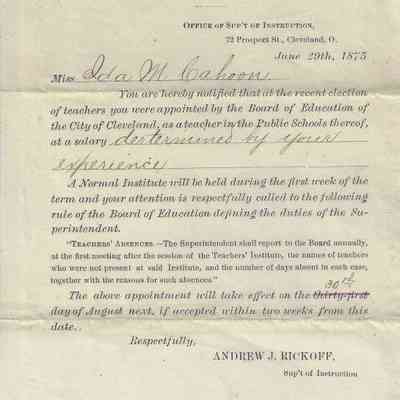 OFFICE OF SUP'T OF INSTRUCTION,
72 Prospect St., Cleveland, O.
June 29th, 1875
Miss Ida M Cahoon
You are hereby notified that at the recent election
of teachers you were appointed by the Board of Education of
the City of Cleveland, as a teacher in the Public Schools thereof,
at a salary determined by your
experience
A Normal Institute will be held during the first week of the
term and your attention is respectfully called to the following
rule of the Board of Education defining the duties of the Su-
perintendent.
"TEACHERS' ABSENCES.—The Superintendent shall report to the Board annually,
at the first meeting after the session of the Teachers' Institute, the names of teachers
who were not present at said Institute, and the number of days absent in each case,
together with the reasons for such absences."
30th
The above appointment will take effect on the thirty-first
day of August next, if accepted within two weeks from this
date.
Respectfully,
ANDREW J. RICKOFF,
Sup't of Instruction